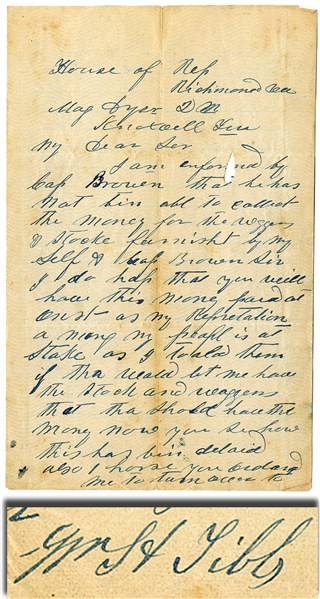 House of Rep
Richmond Va
Maj Dyer Q M
Knoxvell Ten
My Dear Ser
I am enformd by
Cap Browen that he has
not bin able to collect
the money for the waggens
& Stocke furnisht by my
Self & Cap Brown Sir
I do hop that you will
have this money paid at
onst as my Repretation
a mong my peopl is at
Stake as I toald them
if tha would let me have
the Stock and waggens
that tha Should have the
money now you Se how
this has bin delaid
also 1 horse you ordard
me to turn over to
Wm H Tibbs